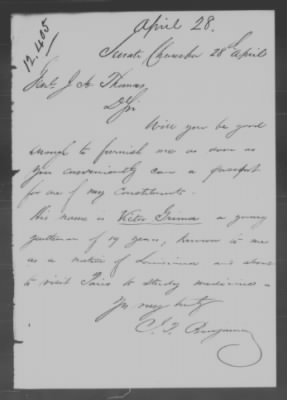 April 28.
12.405
Senate Chamber 28th April
Hon. J A Thomas,
D Sir
Will you be good
enough to furnish me as soon as
you conveniently can a passport
for one of my Constituents.
His name is Victor Grima a young
gentleman of 19 years, known to me
as a native of Louisiana and about
to visit Paris to study medicine -
Yrs very truly
J. P. Benjamin